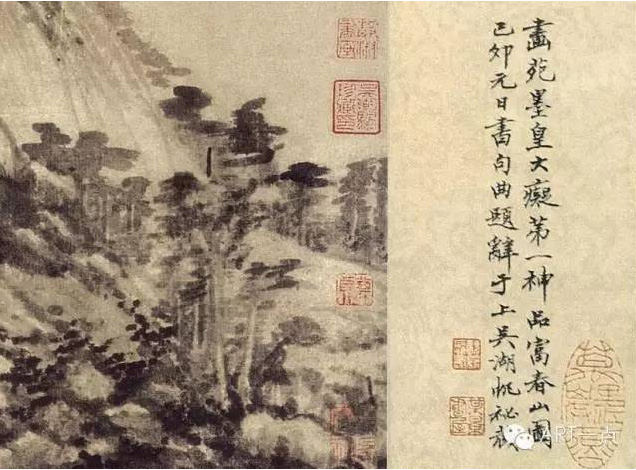 畫苑墨皇大癡第一神品富春山圖
己卯元日書句曲題辭于上吳湖帆祕藏
ART一点